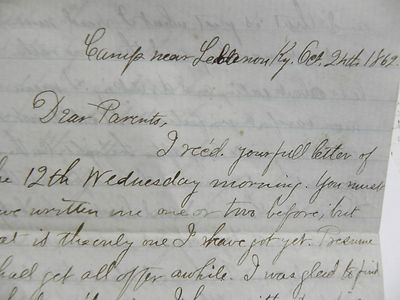 Camp near Lebanon Ky. Oct. 24th 1862.
Dear Parents,
I rec'd. your full letter of
he 12th Wednesday morning. You must
ve written me one or two before, but
at is the only one I have got yet. Presume
hall get all after awhile. I was glad to find